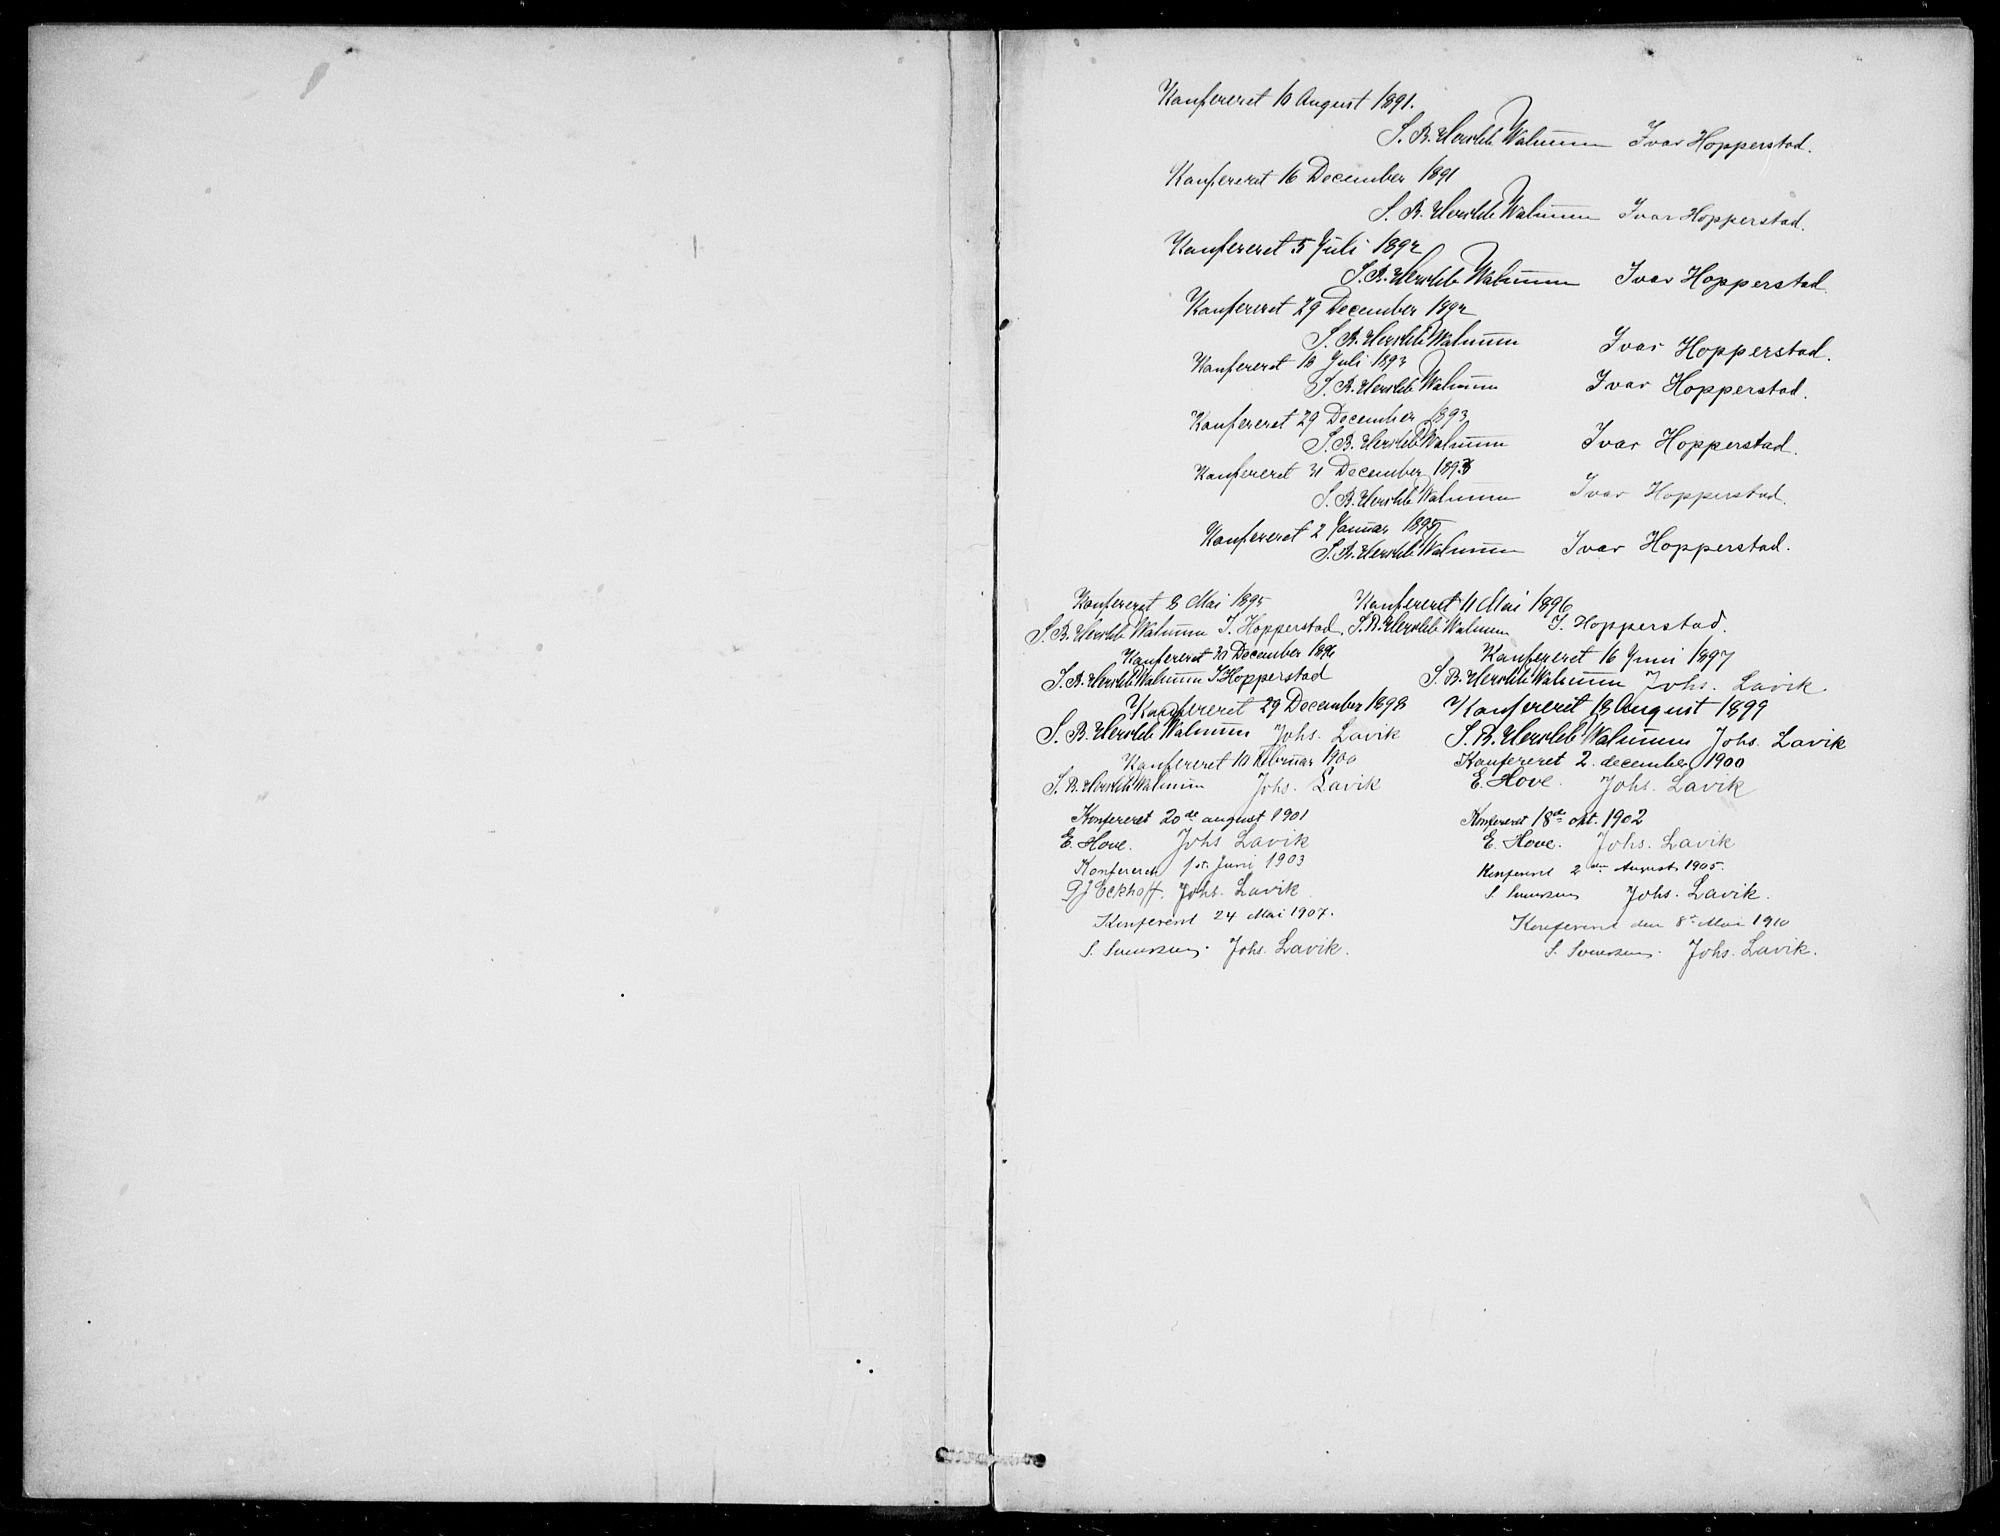 Konfereret 10 August 1891.
S. B. Hersleb Walnum Ivar Hopperstad.
Konfereret 16 December 1891
S. B. Hersleb Walnum Ivar Hopperstad.
Konfereret 5 Juli 1892
S. B. Hersleb Walnum Ivar Hopperstad
Konfereret 29 December 1892
S. B. Hersleb Walnum Ivar Hopperstad.
Konfereret 18 Juli 1893
S. B. Hersleb Walnum Ivar Hopperstad.
Konfereret 29 December 1893
S. B. Hersleb Walnum Ivar Hopperstad.
Konfereret 31 December 1893
S. B. Hersleb Walnum Ivar Hopperstad.
Konfereret 2 Januar 1895
S. B. Hersleb Walnum Ivar Hopperstad.
Konfereret 8 Mai 1895
S. B. Hersleb Walnum I. Hopperstad.
Konfereret 11 Mai 1896
S. B. Hersleb Walnum I. Hopperstad.
Konfereret 31 December 1896
S. B. Hersleb Walnum I Hopperstad
Konfereret 16 Juni 1897
S. B. Hersleb Walnum Johs. Lavik.
Konfereret 29 December 1898
S. B. Hersleb Walnum Johs. Lavik
Konfereret 18 August 1899
S. B. Hersleb Walnum Johs. Lavik
Konfereret 10 Februar 1900
S. B. Hersleb Walnum Johs. Lavik
Konfereret 2. december 1900
E. Hove. Johs. Lavik
Konfereret 20de august 1901
E. Hove. Johs Lavik
Konfereret 18de okt. 1902
E. Hove. Johs. Lavik
Konfereret 1ste Juni 1903
Eckhoff. Johs. Lavik
Konfereret 2den August 1905.
S. Svensen Johs. Lavik.
Konfereret 24 Mai 1907.
S. Svensen. Johs. Lavik.
Konfereret den 8de Mai 1910
S. Svensen. Johs. Lavik.